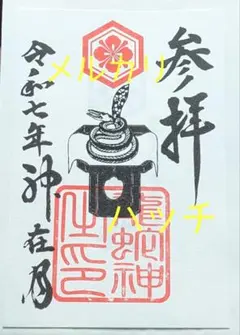 参拝
令和七年神在月
龍蛇神
之印
メルカリ
ハッチ